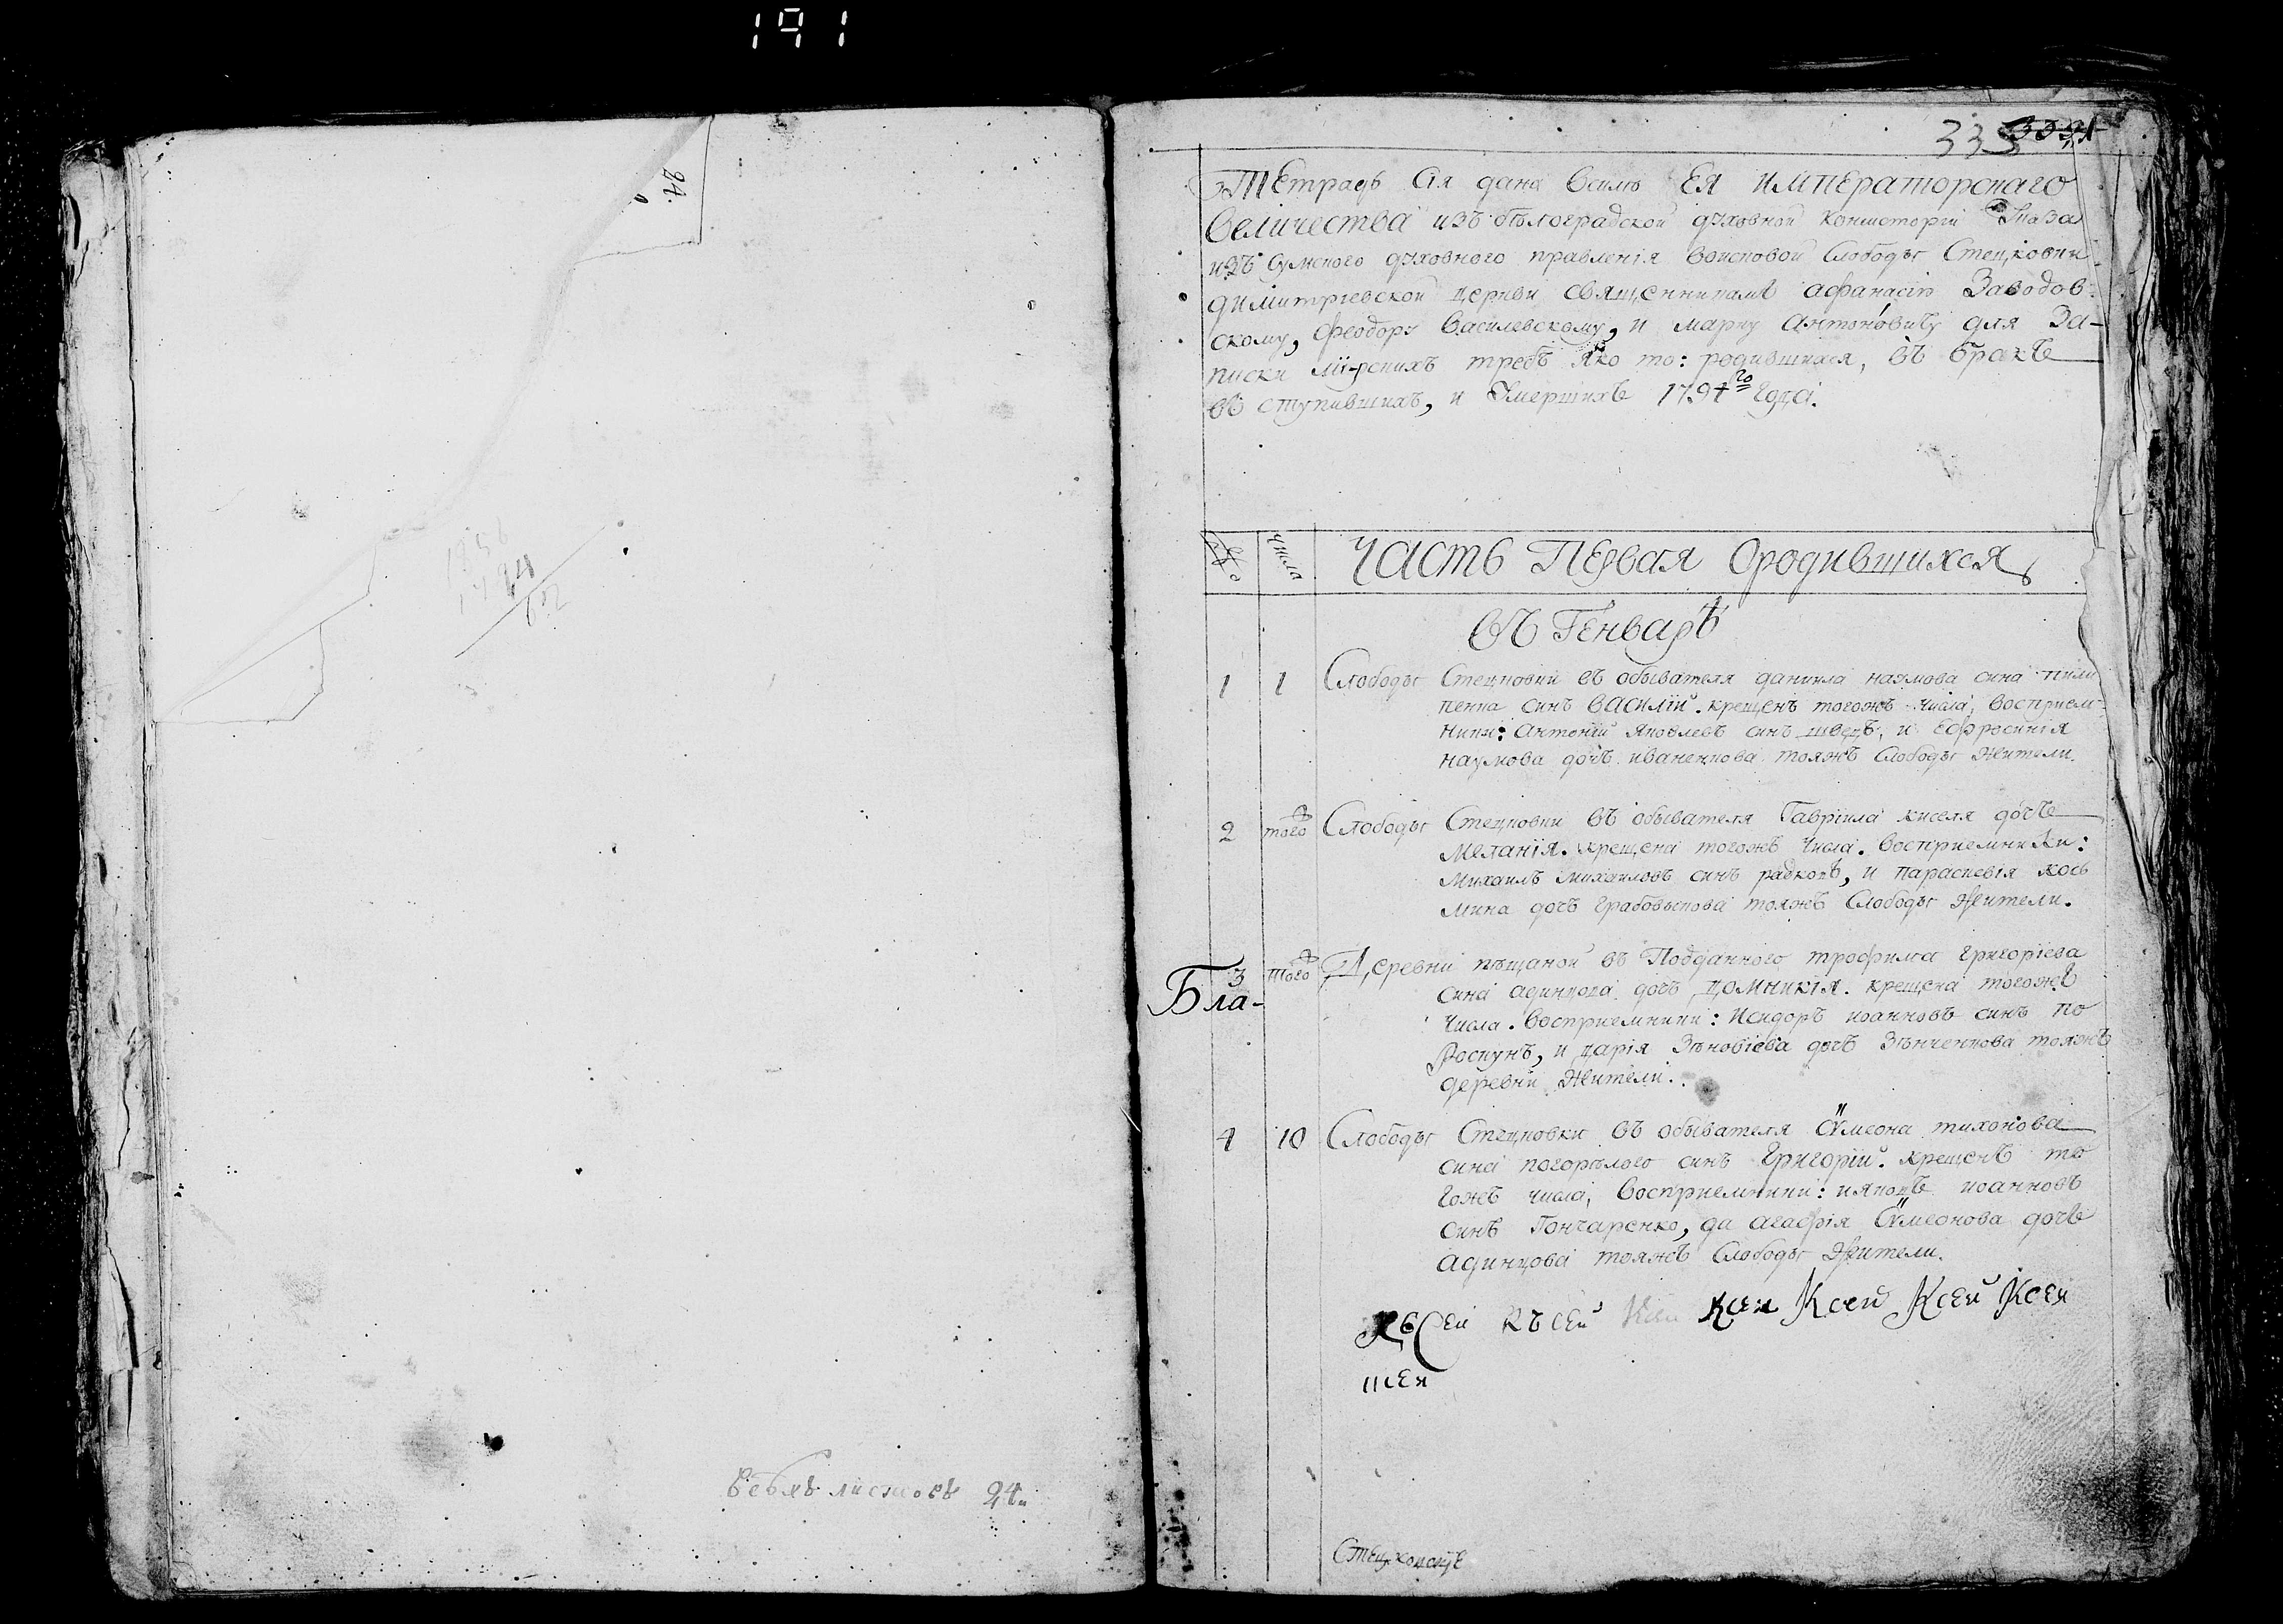 191
24.
1794
Всѣхъ листовъ 24.
333
Тетрадь Сія дана всилѣ ЕЯ ИМПЕРАТОРСКАГО
Величества изъ бѣлоградской духовной Консисторіи Указа
изъ Сумского духовного правленія войсковой Слободы Стецковки
димитріевской церкви священникамъ афанасію Заводов-
скому, феодору Василевскому, и марку антоновичу для За-
писки мірскихъ требъ яко то: родившихся, въ бракъ
въ ступившихъ, и Умершихъ 1794го года.
числа
ЧАСТЬ ПЕРвая Ородившихся
въ Генварѣ
1 1 Слободы Стецковки въ обывателя даниила наумова сина пили
пенка синъ ВАСИЛІЙ. крещенъ тогожъ числа, восприем-
ники: Антоній Яковлевъ синъ швецъ, и Ефросинія
наумова дочъ иваненкова тояжъ Слободы Жители.
2 того Слободы Стецковки въ обывателя Гавріила киселя дочъ
Меланія. крещена тогожъ числа. восприемники:
Михаилъ михаиловъ синъ радкои, и параскевія кось
мина дочъ грабовскова тояжъ Слободы Жители.
3 того Деревни пѣщаной въ Подданного трофима григоріева
Бла-
сина адинцова дочъ ДОМНИКІЯ. крещена тогожъ
числа. восприемники: Исидоръ иоанновъ синъ по
роскунъ, и дарія Зѣновіева дочъ Зѣнченкова тояжъ
деревни Жители.
4 10 Слободы Стецковки въ обывателя Сѵмеона тихонова
сина погорѣлого синъ Григорій. крещенъ то
гожъ числа, восприемники: ияковъ иоанновъ
синъ Гончаренко, да агафія Сѵмеонова дочъ
адинцова тояжъ Слободы Жители.
Къ Сей Къ сей Ксей Ксей Ксей Ксей Ксей